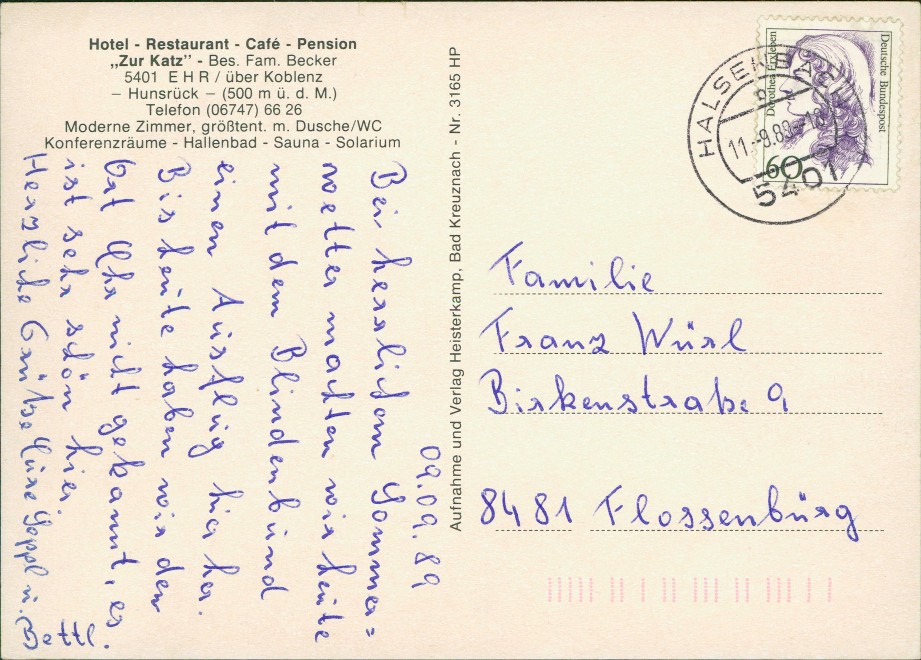 Hotel - Restaurant - Café - Pension
„Zur Katz" - Bes. Fam. Becker
5401 EHR / über Koblenz
– Hunsrück – (500 m ü. d. M.)
Telefon (06747) 66 26
Moderne Zimmer, größtent. m. Dusche/WC
Konferenzräume - Hallenbad - Sauna - Solarium
09.09.89
Bei herrlichem Sommer=
wetter machten wir heute
mit dem Blindenbund
einen Ausflug hierher.
Bis heute haben wir den
Ort Ehr nicht gekannt, es
ist sehr schön hier.
Herzliche Grüße Eure Seppl u. Bettl.
Aufnahme und Verlag Heisterkamp, Bad Kreuznach - Nr. 3165 HP
Deutsche Bundespost
Dorothea Erxleben
60
HALSENBACH
11.-9.89-18
5401
Familie
Franz Würl
Birkenstraße 9
8481 Flossenbürg